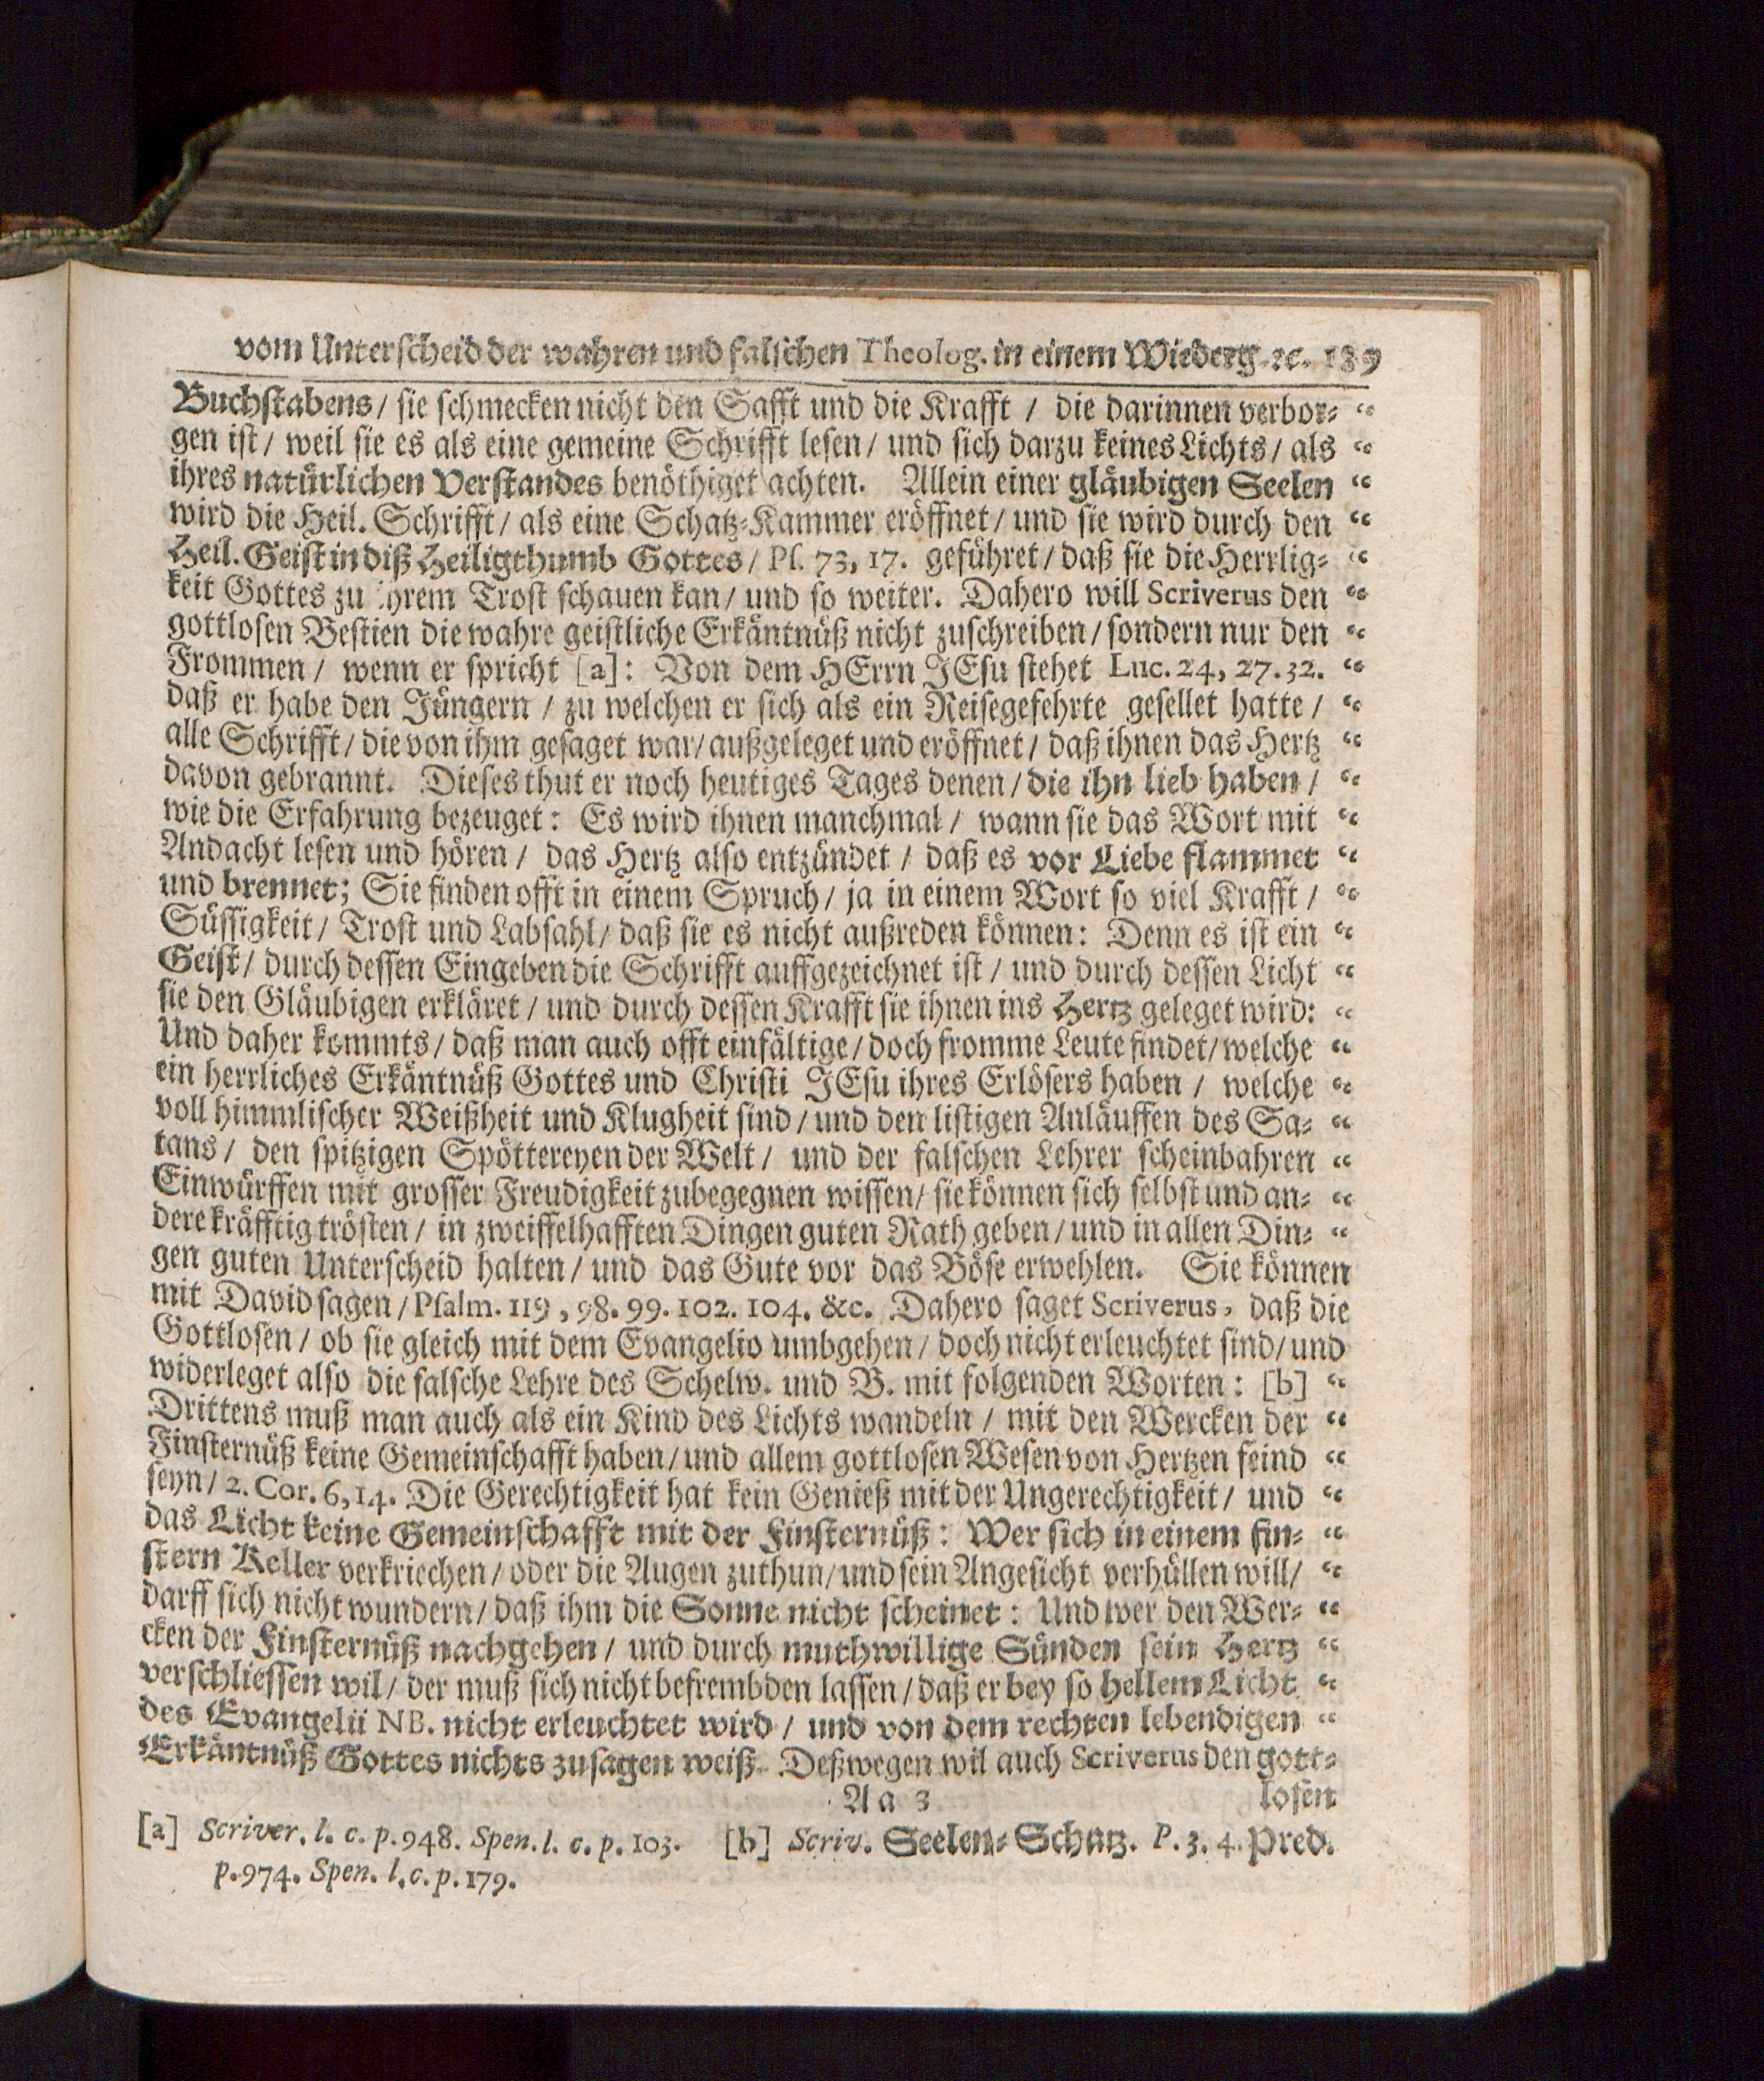 vom Unterscheid der wahren und falschen Theolog. in einem Wiederg. ꝛc. 189
Buchstabens / sie schmecken nicht den Safft und die Krafft / die darinnen verbor= “
gen ist / weil sie es als eine gemeine Schrifft lesen / und sich darzu keines Lichts / als “
ihres natürlichen Verstandes benöthiget achten. Allein einer gläubigen Seelen “
wird die Heil. Schrifft / als eine Schatz=Kammer eröffnet / und sie wird durch den “
Heil. Geist in diß Heiligthumb Gottes / Ps. 73, 17. geführet / daß sie die Herrlig= “
keit Gottes zu ihrem Trost schauen kan / und so weiter. Dahero will Scriverus den “
gottlosen Bestien die wahre geistliche Erkäntnüß nicht zuschreiben / sondern nur den “
Frommen / wenn er spricht [a]: Von dem HErrn JEsu stehet Luc. 24, 27. 32. “
daß er habe den Jüngern / zu welchen er sich als ein Reisegefehrte gesellet hatte / “
alle Schrifft / die von ihm gesaget war / außgeleget und eröffnet / daß ihnen das Hertz “
davon gebrannt. Dieses thut er noch heutiges Tages denen / die ihn lieb haben / “
wie die Erfahrung bezeuget: Es wird ihnen manchmal / wann sie das Wort mit “
Andacht lesen und hören / das Hertz also entzündet / daß es vor Liebe flammet “
und brennet; Sie finden offt in einem Spruch / ja in einem Wort so viel Krafft / “
Süssigkeit / Trost und Labsahl / daß sie es nicht außreden können: Denn es ist ein “
Geist / durch dessen Eingeben die Schrifft auffgezeichnet ist / und durch dessen Licht “
sie den Gläubigen erkläret / und durch dessen Krafft sie ihnen ins Hertz geleget wird: “
Und daher kommts / daß man auch offt einfältige / doch fromme Leute findet / welche “
ein herrliches Erkäntnüß Gottes und Christi JEsu ihres Erlösers haben / welche “
voll himmlischer Weißheit und Klugheit sind / und den listigen Anläuffen des Sa= “
tans / den spitzigen Spöttereyen der Welt / und der falschen Lehrer scheinbahren “
Einwürffen mit grosser Freudigkeit zubegegnen wissen / sie können sich selbst und an= “
dere kräfftig trösten / in zweiffelhafften Dingen guten Rath geben / und in allen Din= “
gen guten Unterscheid halten / und das Gute vor das Böse erwehlen. Sie können
mit David sagen / Psalm. 119, 98. 99. 102. 104. &c. Dahero saget Scriverus, daß die
Gottlosen / ob sie gleich mit dem Evangelio umbgehen / doch nicht erleuchtet sind / und
widerleget also die falsche Lehre des Schelw. und B. mit folgenden Worten: [b] “
Drittens muß man auch als ein Kind des Lichts wandeln / mit den Wercken der “
Finsternüß keine Gemeinschafft haben / und allem gottlosen Wesen von Hertzen feind “
seyn / 2. Cor. 6, 14. Die Gerechtigkeit hat kein Genieß mit der Ungerechtigkeit / und “
das Licht keine Gemeinschafft mit der Finsternüß: Wer sich in einem fin= “
stern Keller verkriechen / oder die Augen zuthun / und sein Angesicht verhüllen will / “
darff sich nicht wundern / daß ihm die Sonne nicht scheinet: Und wer den Wer= “
cken der Finsternüß nachgehen / und durch muthwillige Sünden sein Hertz “
verschliessen wil / der muß sich nicht befrembden lassen / daß er bey so hellem Licht “
des Evangelii NB. nicht erleuchtet wird / und von dem rechten lebendigen “
Erkäntnüß Gottes nichts zusagen weiß. Deßwegen wil auch Scriverus den gott=
Aa 3 losen
[a] Scriver. l. c. p. 948. Spen. l. c. p. 103. [b] Scriv. Seelen=Schatz. P. 3. 4. Pred.
p. 974. Spen. l. c. p. 179.